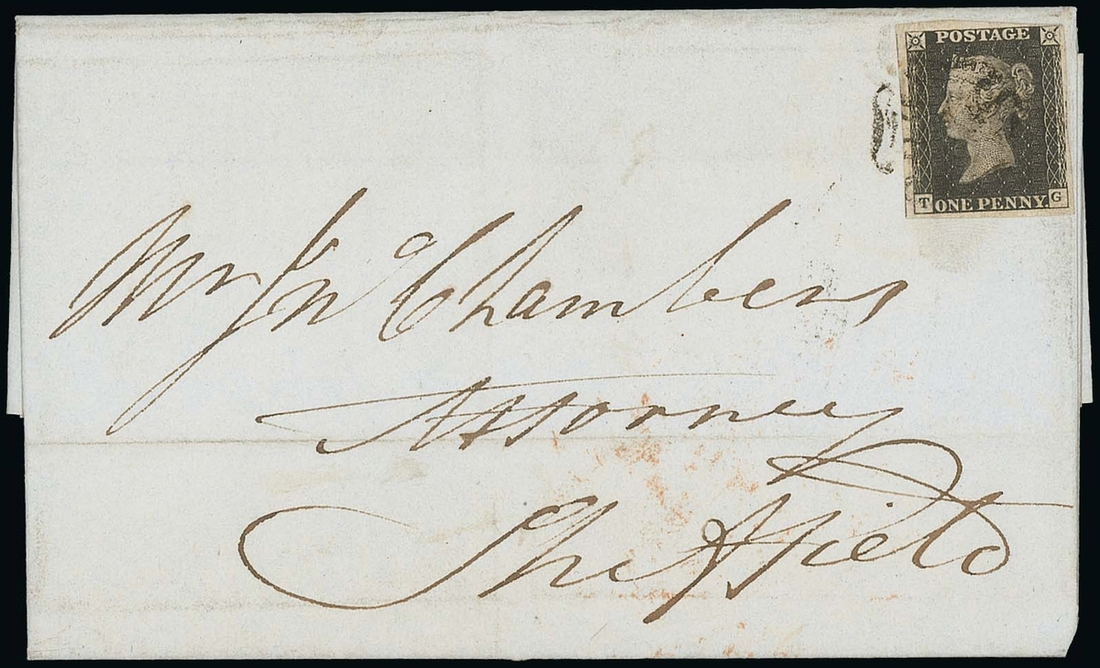 POSTAGE
T ONE PENNY G
Mr Jn Chambers
Attorney
Sheffield